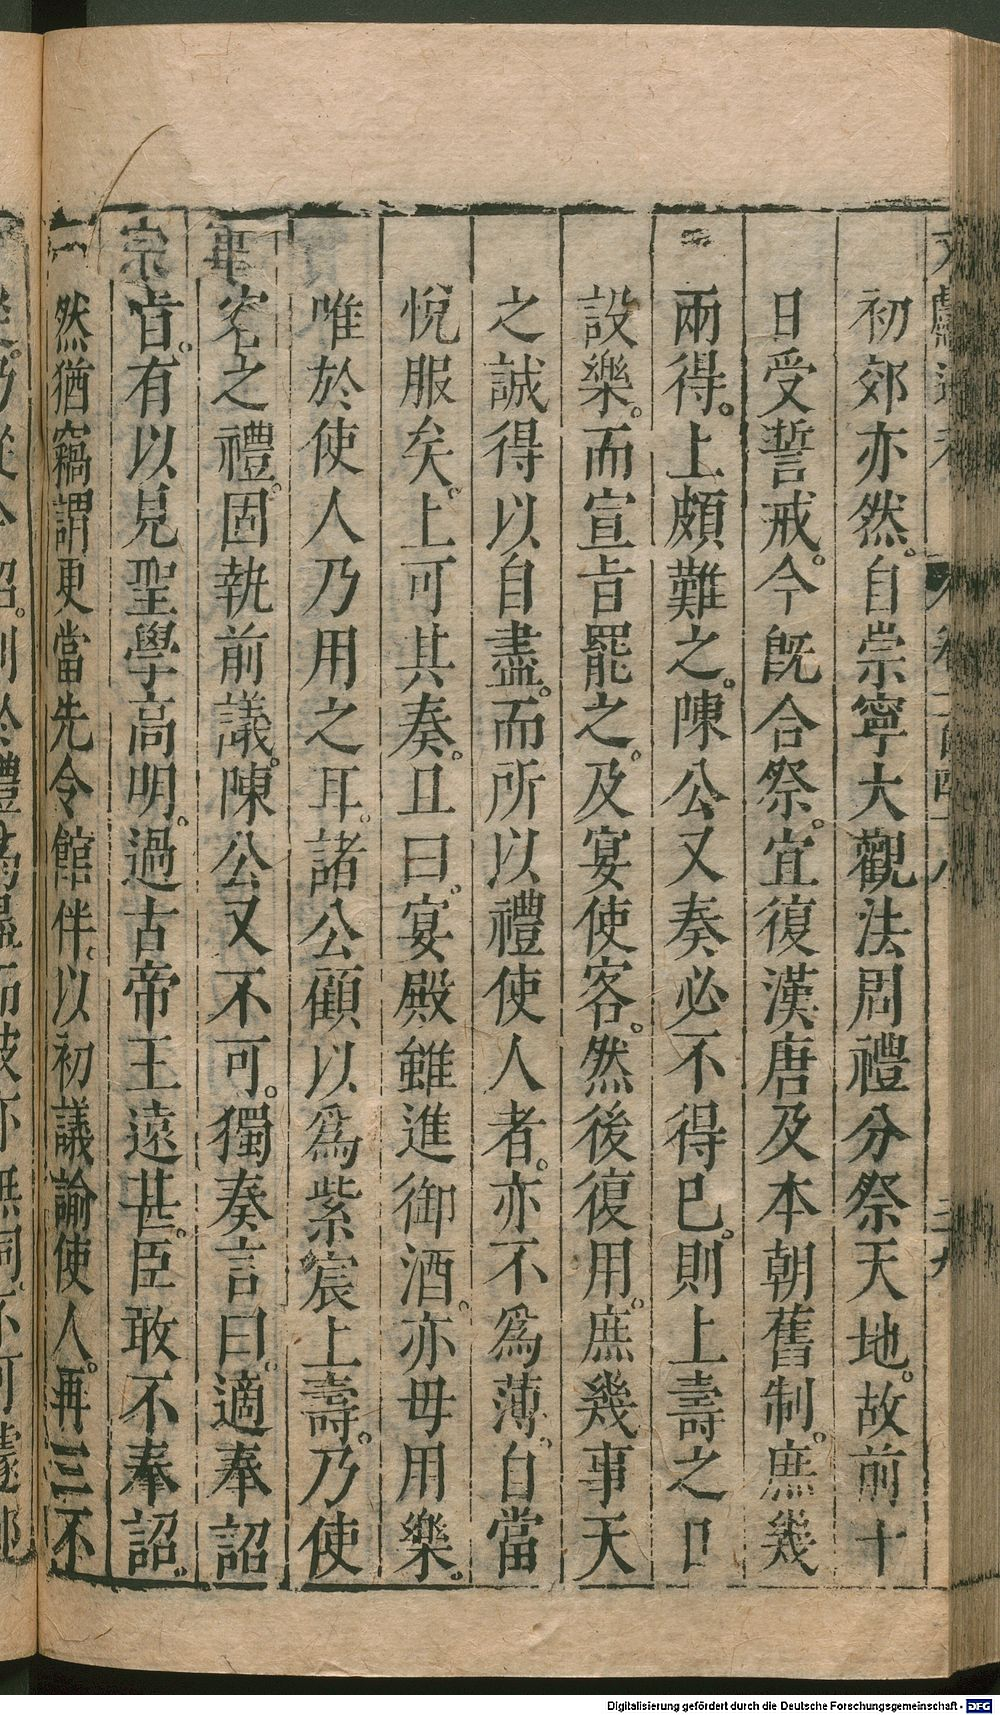 初郊亦然。自崇寧大觀法周禮分祭天地。故前十
日受誓戒。今旣合祭。宜復漢唐及本朝舊制。庶幾
兩得。上頗難之。陳公又奏必不得已。則上壽之日
設樂。而宣旨罷之。及宴使客。然後復用。庶幾事天
之誠得以自盡。而所以禮使人者。亦不爲薄。自當
悅服矣。上可其奏。且曰。宴殿雖進御酒。亦毋用樂。
唯於使人乃用之耳。諸公顧以爲紫宸上壽。乃使
客之禮。固執前議。陳公又不可。獨奏言曰。適奉詔
旨。有以見聖學高明。過古帝王遠甚。臣敢不奉詔。
然猶竊謂更當先令館伴。以初議諭使人。再三不
Digitalisierung gefördert durch die Deutsche Forschungsgemeinschaft - DFG